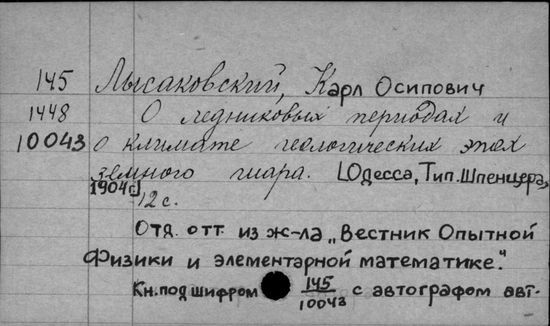 145 Лысаковский, Карл Осипович
1448 О ледниковых периодах и
10043 о климате геологических эпох
земного шара. [Одесса, Тип. Шпенцера,
1904г.]
12 с.
Отд. отт. из ж-ла „Вестник Опытной
Физики и элементарной математике".
Кн. под шифром 145/10043 с автографом авт.